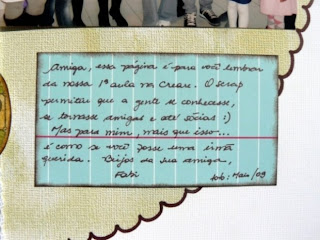 Amiga, essa página é para você lembrar
da nossa 1ª aula na Creare. O scrap
permitiu que a gente se conhecesse,
se tornasse amigas e até sócias :)
Mas para mim, mais que isso...
é como se você fosse uma irmã
querida. Beijos da sua amiga,
fob: Maio/09